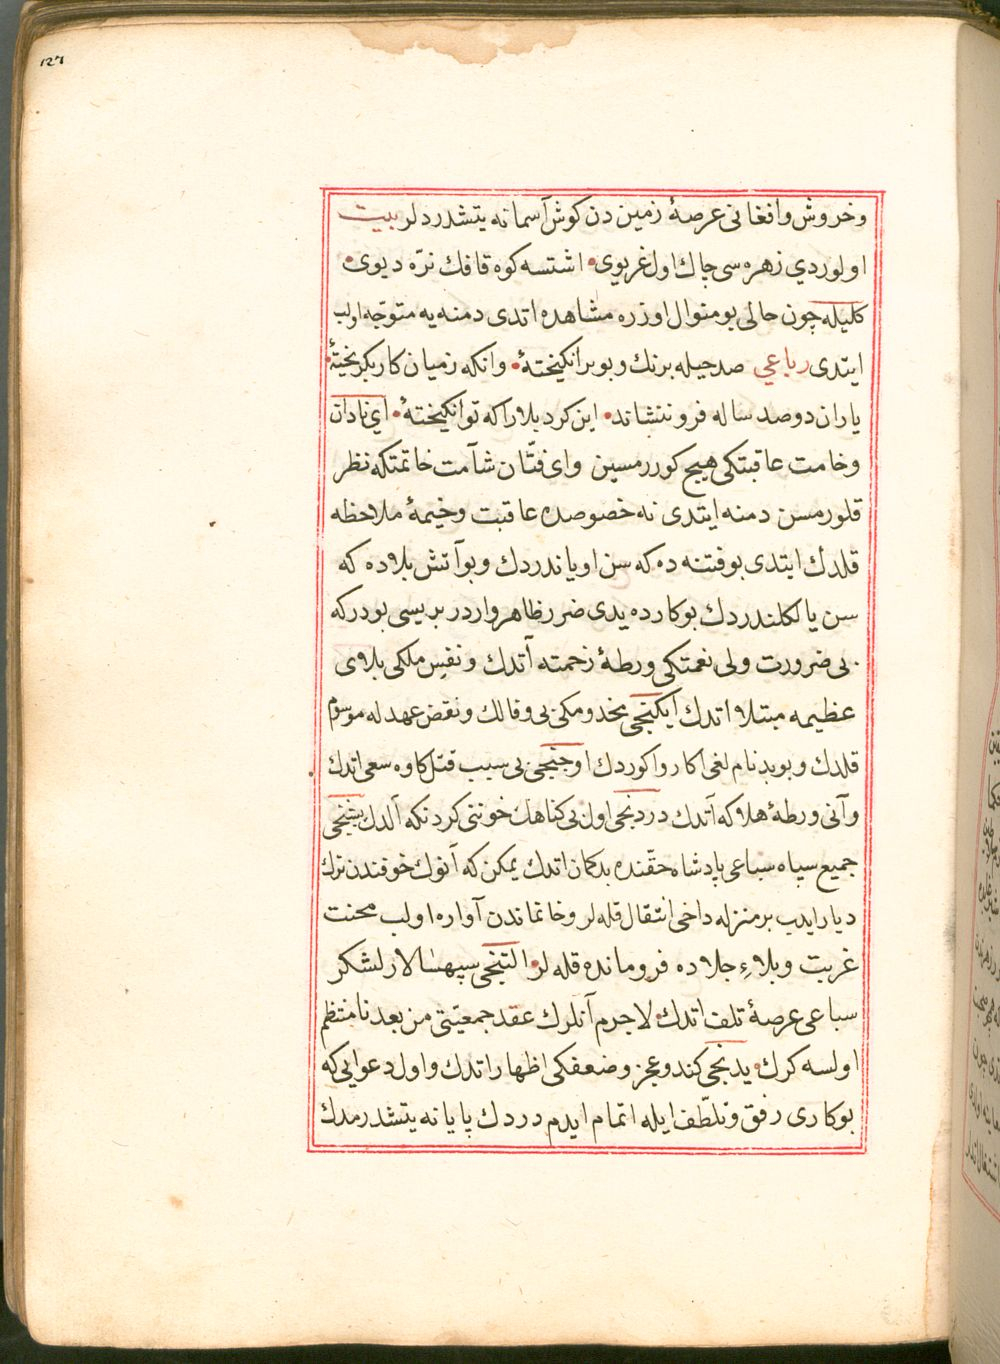 ١٢٦
وخروش وافغانی عرصهٔ زمین دن کوش آسمانه یتشدردلر بیت
اولوردي زهره سی چاك اول غریوی • اشتسه کوه قافك نرّه دیوی •
کلیله چون حالی بو منوال اوزره مشاهده اتدی دمنه یه متوجّه اولب
ایتدی رباعي صد حیله برنك وبو برانکیختهٔ • وانکه زمیان کار بکریختهٔ •
یاران دوصد ساله فروننشاند • این کرد بلارا که توانکیختهٔ • اي نادان
وخامت عاقبتکی هیچ کوررمسین وای فتّان شآمت خاتمتکه نظر
قلورمسن دمنه ایتدی نه خصوصده عاقبت وخیمهٔ ملاحظه
قلدك ایتدی بو فتنه ده که سن اویاندردك وبو آتش بلاده که
سن یالکلندردك بو کارده یدی ضرر ظاهر واردر بریسی بودرکه
بی ضرورت ولی نعمتکی ورطهٔ زحمته آتدك ونفس ملکی بلاوی
عظیمه مبتلا اتدك ایکنجی مخدومکی بی وفالك ونقض عهد له موسوم
قلدك وبوبدنام لغی اکا روا کوردك اوچنجی بی سبب قتل کاوه سعی اتدك
وآنی ورطهٔ هلاکه آتدك دردنجی اول بی کناهك خوننی کردنکه آلدك بیشنجی
جمیع سپاه سباعی پادشاه حقّنده بدکمان اتدك یمکن که آنوك خوفندن ترك
دیار ایدب بر منزله داخی انتقال قله لر وخانماندن آواره اولب محنت
غربت وبلاءِ جلاده فرومانده قله لر • التنجی سپهسالار لشکر
سباعی عرصهٔ تلف اتدك • لاجرم آنلرك عقد جمعیّتی من بعد نامنتظم
اولسه کرك • یدنجی کندو عجز وضعفکی اظهار اتدك واول دعوایی که
بو کاری رفق وتلطّف ایله اتمام ایدم دردك پایانه یتشدرمدك